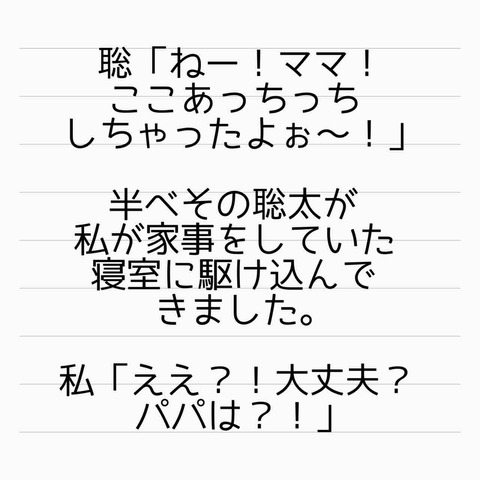 聡「ねー！ママ！
ここあっちっち
しちゃったよぉ〜！」
半べその聡太が
私が家事をしていた
寝室に駆け込んで
きました。
私「ええ？！大丈夫？
パパは？！」